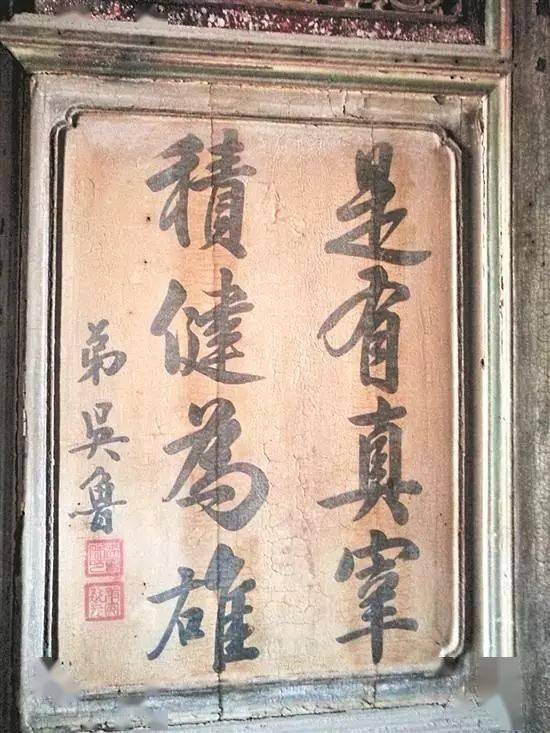 是有真宰
積健為雄
弟吳魯